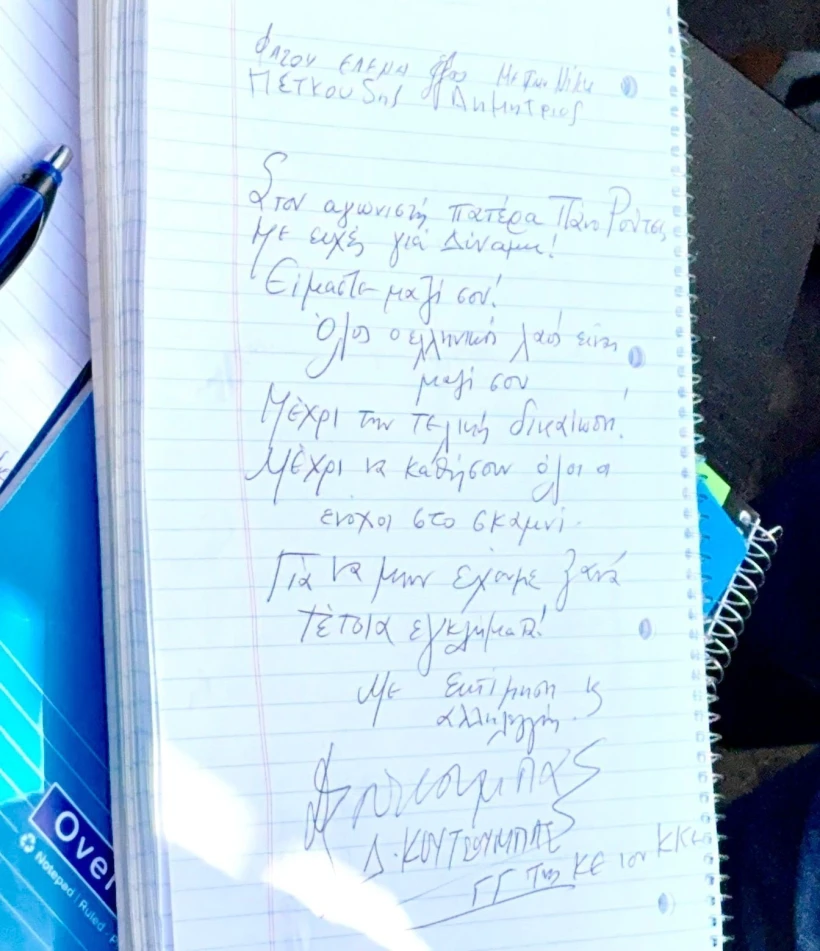 ΕΛΕΝΑ
ΠΕΤΚΟΥΔΗΣ ΔΗΜΗΤΡΙΟΣ
Στον αγωνιστή πατέρα Πάνο Ρούτσι,
Με ευχές για Δύναμη!
Είμαστε μαζί σου!
Όλος ο ελληνικός λαός είναι
μαζί σου
Μέχρι την τελική δικαίωση!
Μέχρι να καθήσουν όλοι οι
ένοχοι στο σκαμνί.
Για να μην έχουμε ξανά
τέτοια εγκλήματα!
Με εκτίμηση κ
αλληλεγγύη.
Δ. ΚΟΥΤΣΟΥΜΠΑΣ
ΓΓ της ΚΕ του ΚΚΕ
Over
Notepad | Ruled